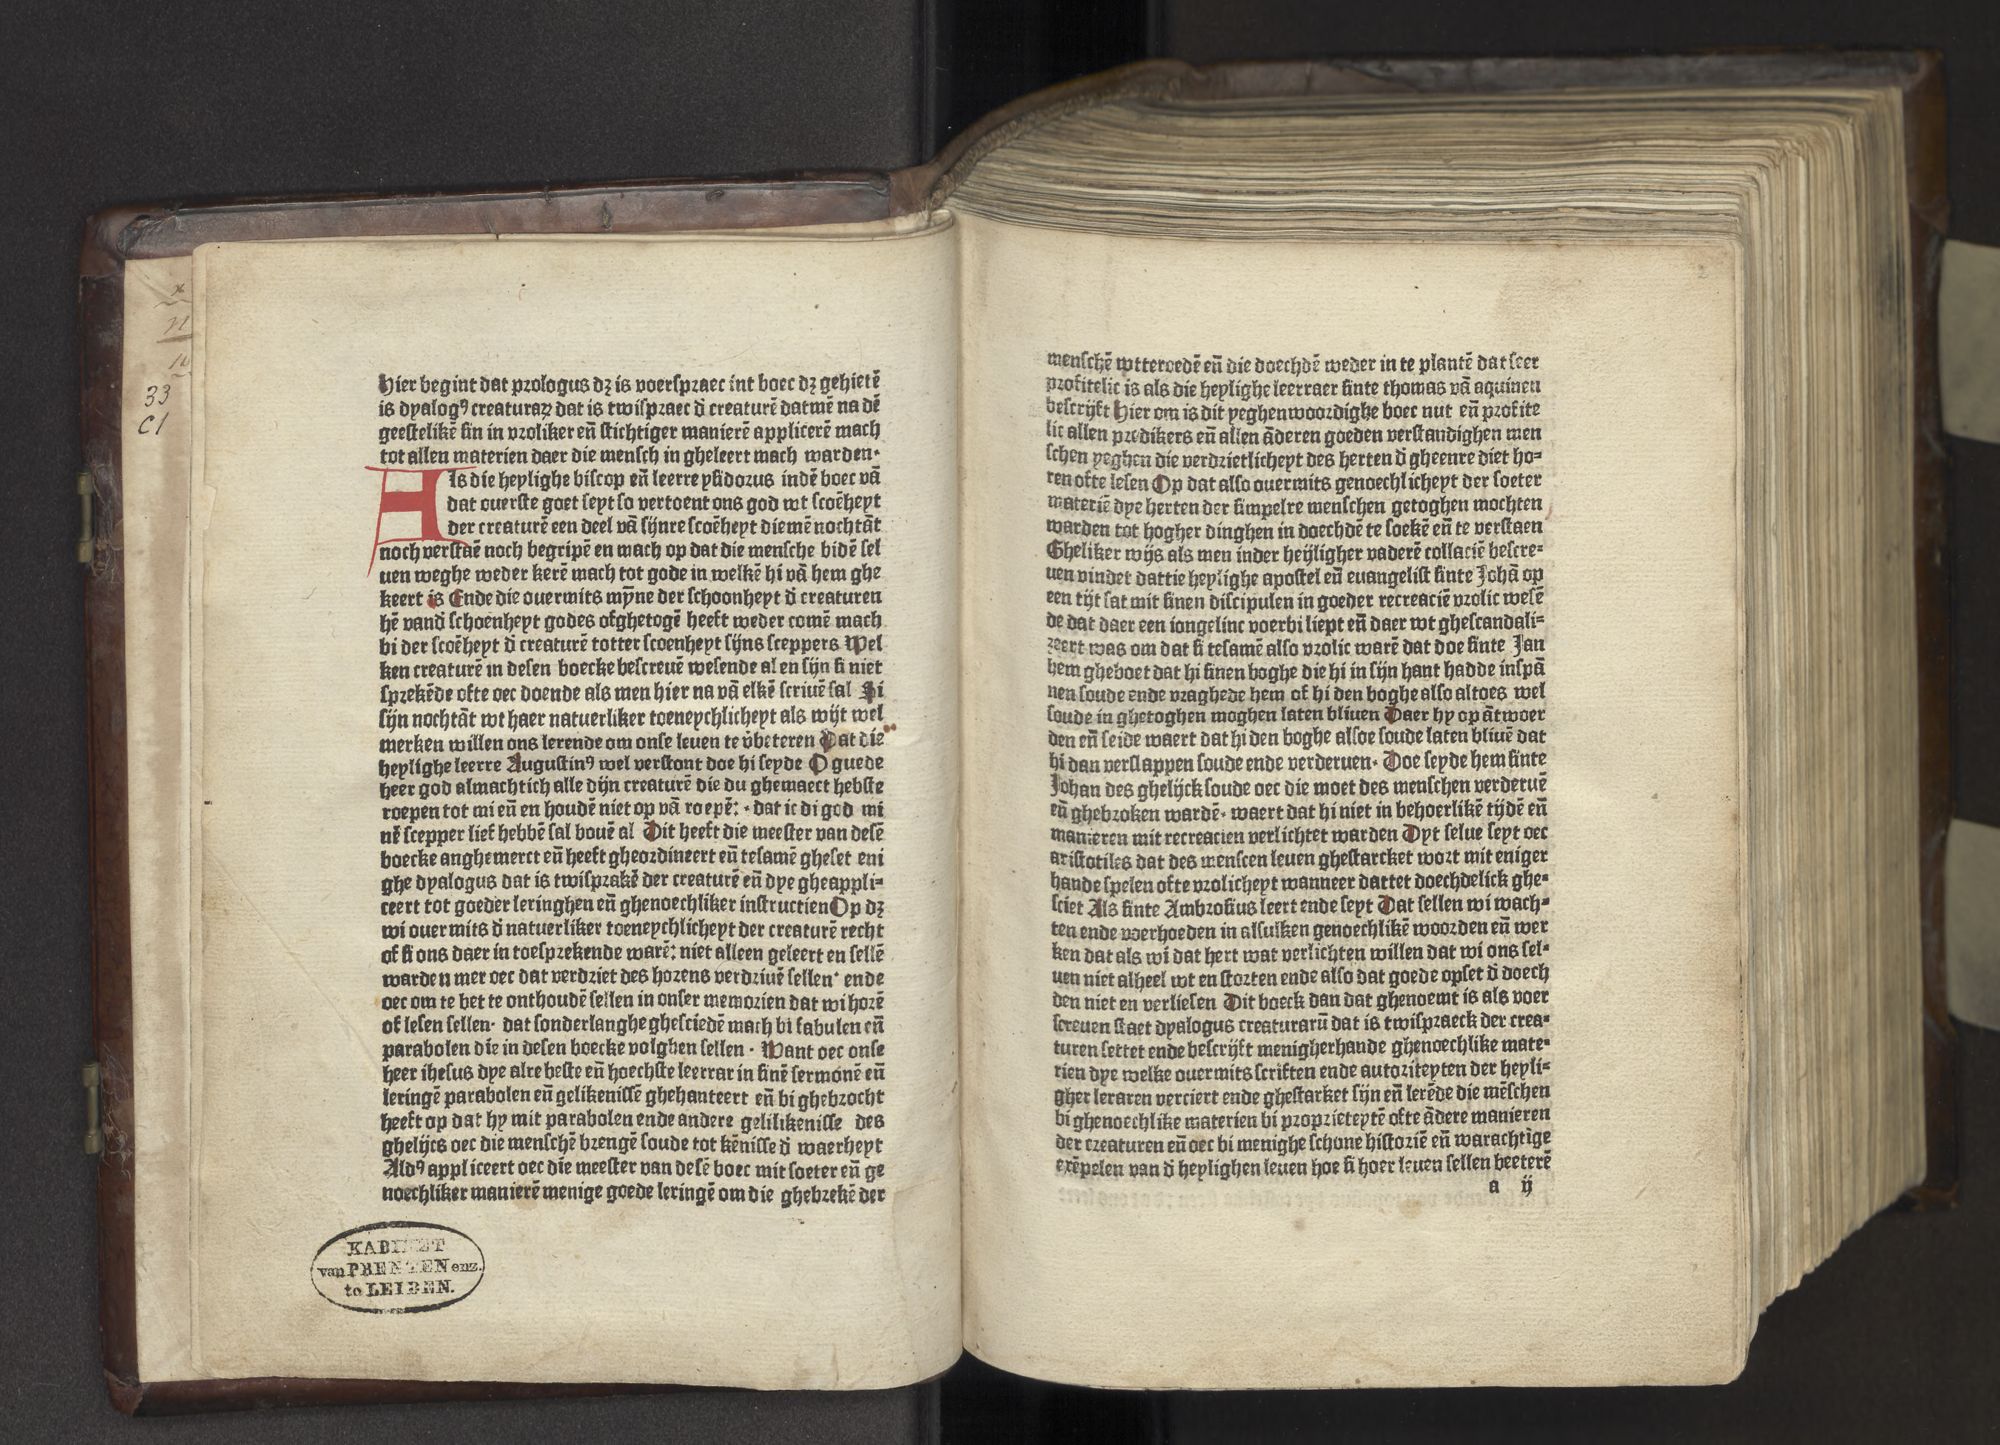 x
33
C1
Hier begint dat prologus dꝫ is voerspraec int boec dꝫ gehietē
is dyalogꝰ creaturaꝝ dat is twispraec d̄ creaturē datmē na dē
geestelikē sin in vroliker en̄ stichtiger manierē applicerē mach
tot allen materien daer die mensch in gheleert mach warden·
Als die heylighe biscop en̄ leerre ysidorus indē boec vā
dat ouerste goet seyt so vertoent ons god wt scoēheyt
der creaturē een deel vā sijnre scoēheyt diemē nochtāt
noch verstaē noch begripē en mach op dat die mensche bidē sel
uen weghe weder kerē mach tot gode in welkē hi vā hem ghe
keert is Ende die ouermits mȳne der schoonheyt d̄ creaturen
hē vand̄ schoenheyt godes ofghetogē heeft weder comē mach
bi der scoēheyt d̄ creaturē totter scoenheyt sijns sceppers Wel
ken creaturē in desen boecke bescreuē wesende al en sijn si niet
sprekēde ofte oec doende als men hier na vā elkē scriuē sal Si
sijn nochtāt wt haer natuerliker toeneychlicheyt als wijt wel
merken willen ons lerende om onse leuen te v̄beteren Dat die
heylighe leerre Augustinꝰ wel verstont doe hi seyde O guede
heer god almachtich alle dijn creaturē die du ghemaect hebste
roepen tot mi en̄ en houdē niet op vā roepē: · dat ic di god mi
nē scepper lief hebbē sal bouē al Dit heeft die meester van desē
boecke anghemerct en̄ heeft gheordineert en̄ tesamē gheset eni
ghe dyalogus dat is twisprakē der creaturē en̄ dye gheappli-
ceert tot goeder leringhen en̄ ghenoechliker instructien Op dꝫ
wi ouermits d̄ natuerliker toeneychlicheyt der creaturē recht
of si ons daer in toesprekende warē: niet alleen geleert en sellē
warden mer oec dat verdriet des horens verdriuē sellen· ende
oec om te bet te onthoudē sellen in onser memorien dat wi horē
of lesen sellen· dat sonderlanghe ghesciedē mach bi fabulen en̄
parabolen die in desen boecke volghen sellen · Want oec onse
heer ihesus dye alre beste en̄ hoechste leerrar in sinē sermonē en̄
leringē parabolen en̄ gelikenissē ghehanteert en̄ bi ghebrocht
heeft op dat hy mit parabolen ende andere gelilikenisse des
ghelijcs oec die menschē brengē soude tot kēnisse d̄ waerheyt
Aldꝰ appliceert oec die meester van desē boec mit soeter en̄ ge
noechliker manierē menige goede leringē om die ghebrekē der
KABINET
van PRENTEN enz.
te LEIDEN.
2
menschē wtteroedē en̄ die doechdē weder in te plantē dat seer
profitelic is als die heylighe leerraer sinte thomas vā aquinen
bescrijft Hier om is dit yeghenwoordighe boec nut en̄ profite
lic allen predikers en̄ allen āderen goeden verstandighen men
schen yeghen die verdrietlicheyt des herten d̄ gheenre diet ho-
ren ofte lesen Op dat also ouermits genoechlicheyt der soeter
materiē dye herten der simpelre menschen getoghen mochten
warden tot hogher dinghen in doechdē te soekē en̄ te verstaen
Gheliker wijs als men inder heyligher vaderē collaciē bescre-
uen vindet dattie heylighe apostel en̄ euangelist sinte Johā op
een tijt sat mit sinen discipulen in goeder recreaciē vrolic wesē
de dat daer een iongelinc voerbi liept en̄ daer wt ghescandali-
zeert was om dat si tesamē also vrolic warē dat doe sinte Jan
hem gheboet dat hi sinen boghe die hi in sijn hant hadde inspā
nen soude ende vraghede hem of hi den boghe also altoes wel
soude in ghetoghen moghen laten bliuen Daer hy op ātwoer
den en̄ seide waert dat hi den boghe alsoe soude laten bliuē dat
hi dan verslappen soude ende verderuen· Doe seyde hem sinte
Johan des ghelijck soude oec die moet des menschen verderuē
en̄ ghebroken wardē· waert dat hi niet in behoerlikē tijdē en̄
manieren mit recreacien verlichtet warden Dyt selue seyt oec
aristotiles dat des menscen leuen ghestarcket wort mit eniger
hande spelen ofte vrolicheyt wanneer dattet doechdelick ghe-
sciet Als sinte Ambrosius leert ende seyt Dat sellen wi wach-
ten ende voerhoeden in alsulken genoechlikē woorden en̄ wer
ken dat als wi dat hert wat verlichten willen dat wi ons sel-
uen niet alheel wt en storten ende also dat goede opset d̄ doech
den niet en verliesen Dit boeck dan dat ghenoemt is als voer
screuen staet dyalogus creaturarū dat is twispraeck der crea-
turen settet ende bescrijft menigherhande ghenoechlike mate-
rien dye welke ouermits scriften ende autoriteyten der heyli-
gher leraren verciert ende ghestarket sijn en̄ lerēde die mēschen
bi ghenoechlike materien bi proprieteytē ofte ādere manieren
der creaturen en̄ oec bi menighe schone historiē en̄ warachtige
exēpelen van d̄ heylighen leuen hoe si hoer leuen sellen beeterē
a ij